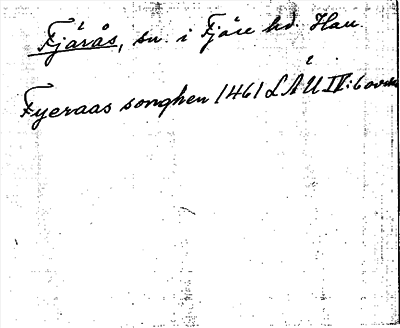 Fjärås, sn. i Fjäre hd. Hall.
Fyeraas songhen 1461 LÅU IV:6 avskr